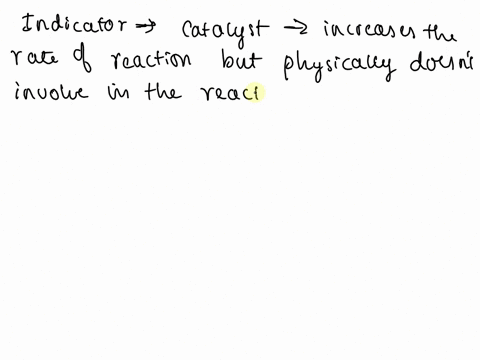 Indicator → Catalyst → increases the
rate of reaction but physically doesn't
involve in the reacti